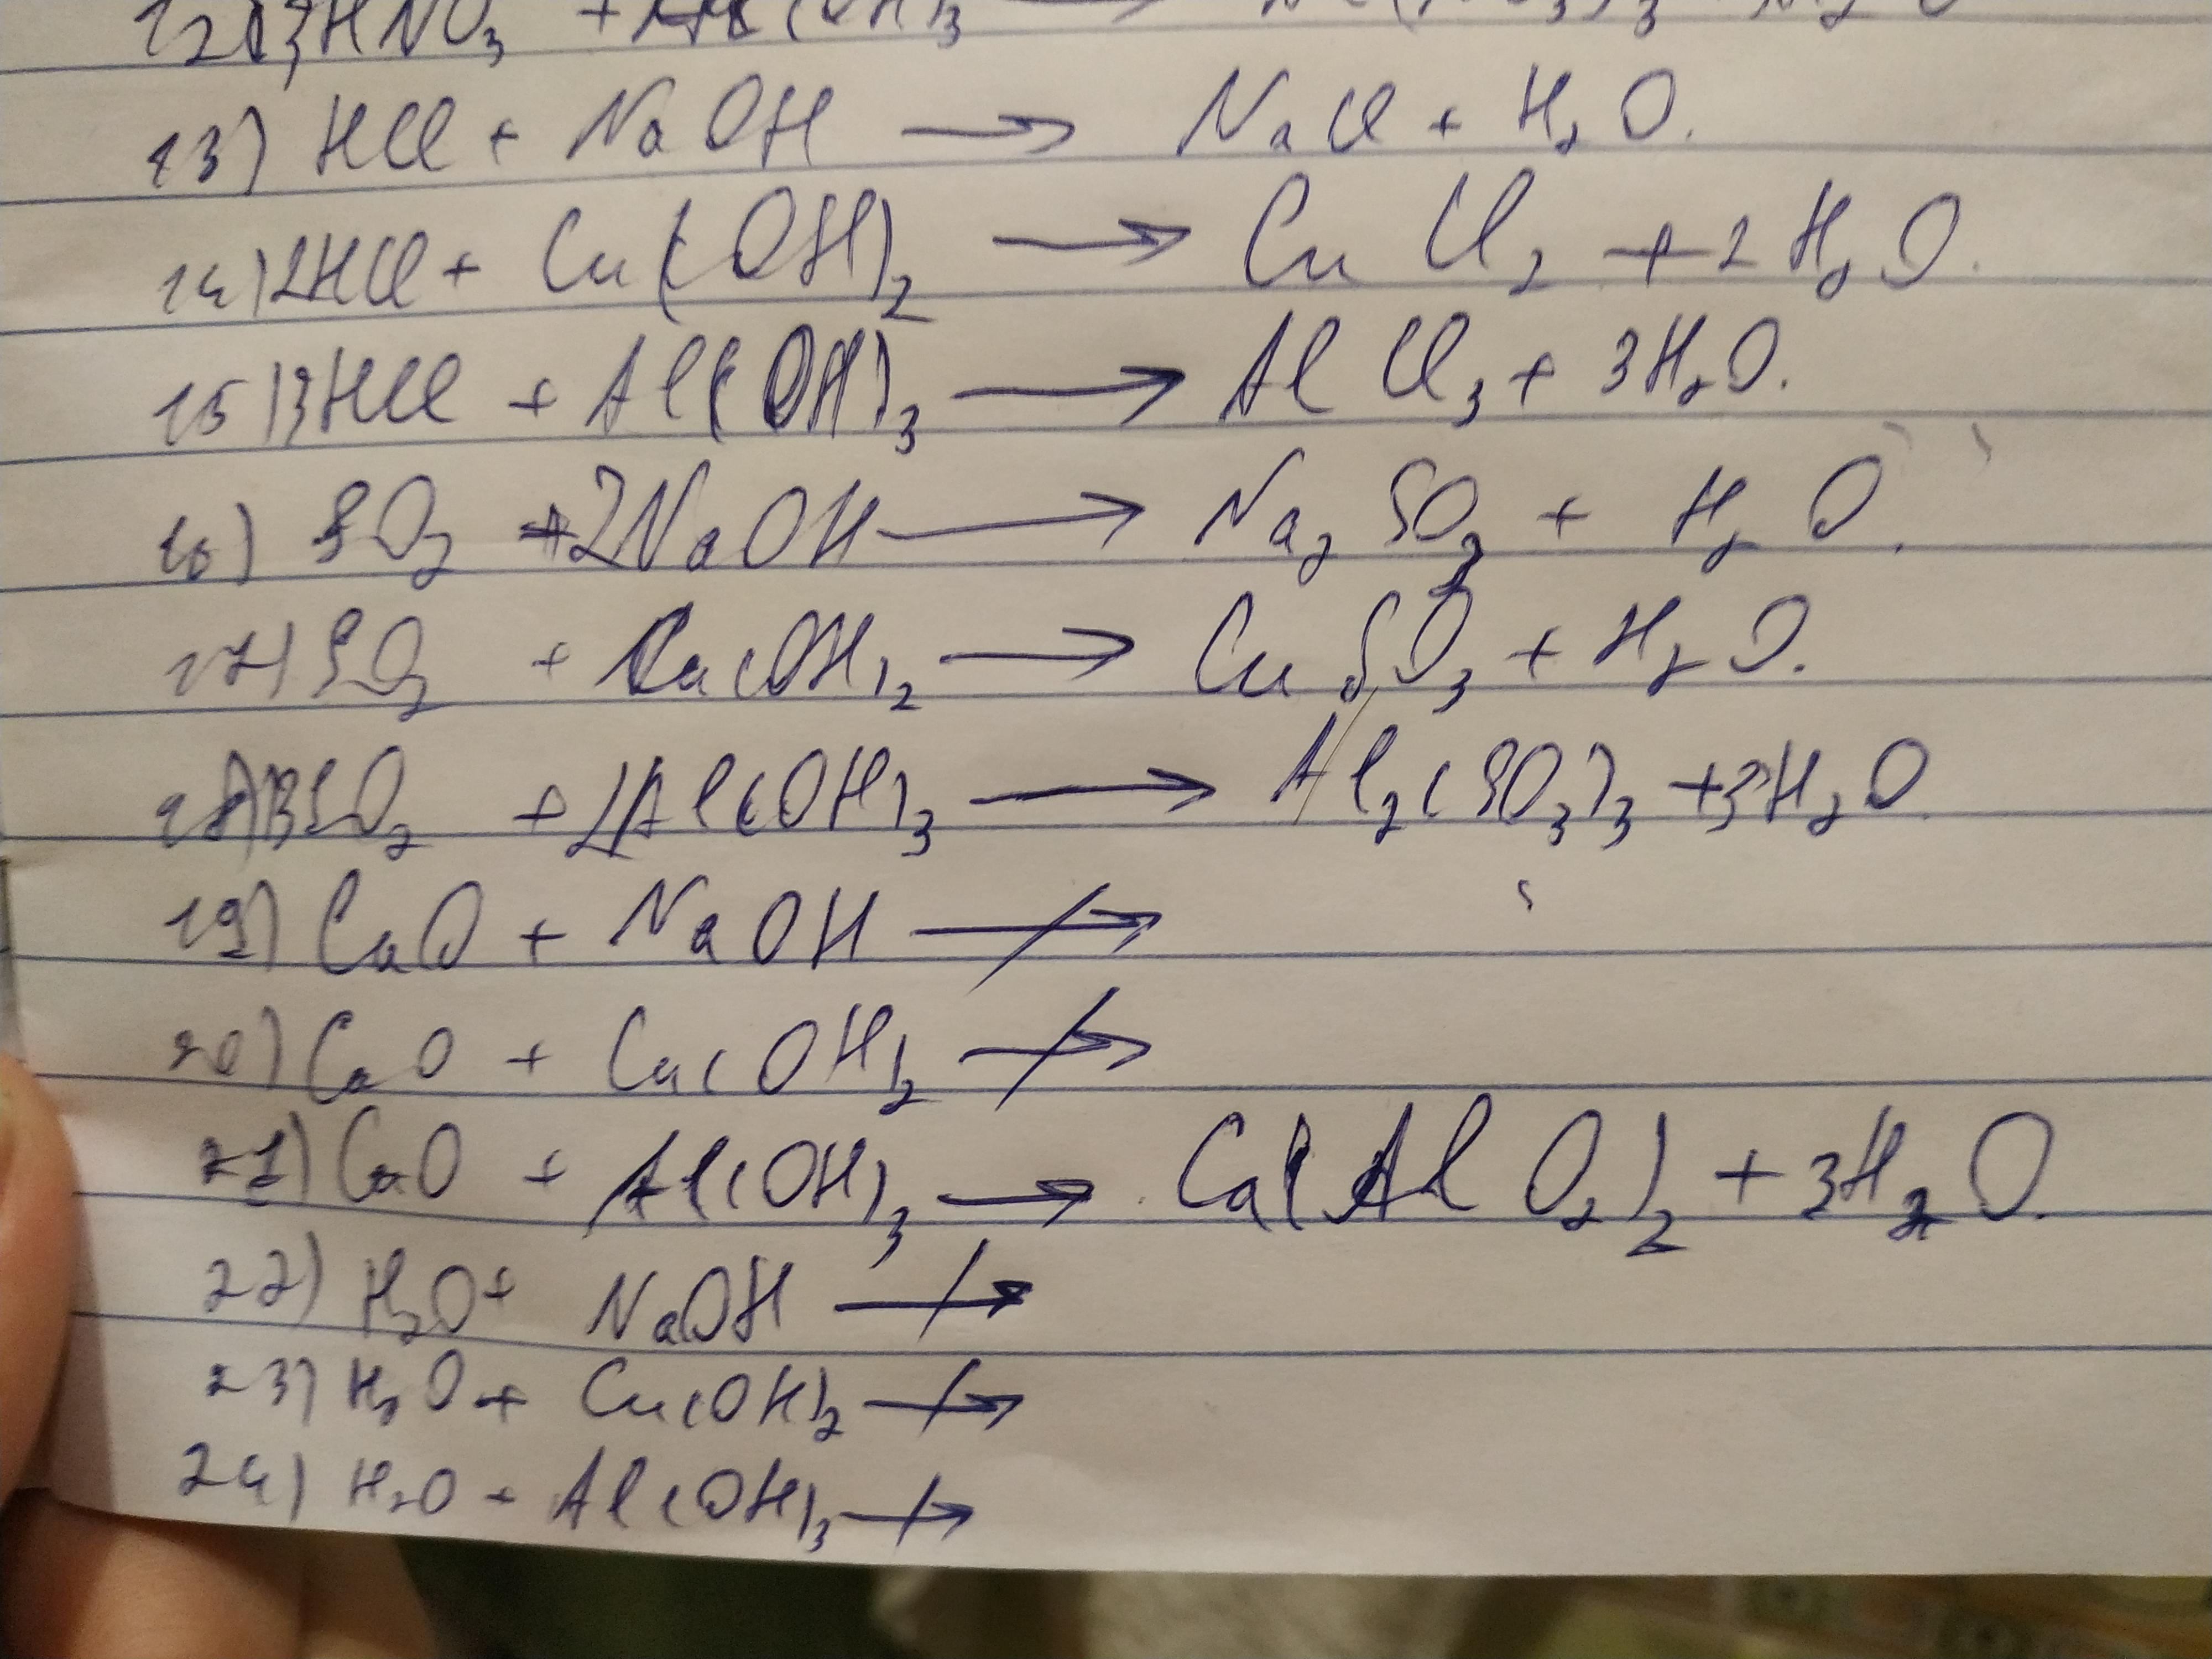 12) 3HNO₃ + Al(OH)₃ →
13) HCl + NaOH → NaCl + H₂O.
14) 2HCl + Cu(OH)₂ → CuCl₂ + 2H₂O.
15) 3HCl + Al(OH)₃ → AlCl₃ + 3H₂O.
16) SO₂ + 2NaOH → Na₂SO₃ + H₂O.
17) SO₂ + Cu(OH)₂ → CuSO₃ + H₂O.
18) 3SO₂ + 2Al(OH)₃ → Al₂(SO₃)₃ + 3H₂O.
19) CaO + NaOH ↛
20) CaO + Cu(OH)₂ ↛
21) CaO + Al(OH)₃ → Ca(AlO₂)₂ + 3H₂O.
22) H₂O + NaOH ↛
23) H₂O + Cu(OH)₂ ↛
24) H₂O + Al(OH)₃ ↛